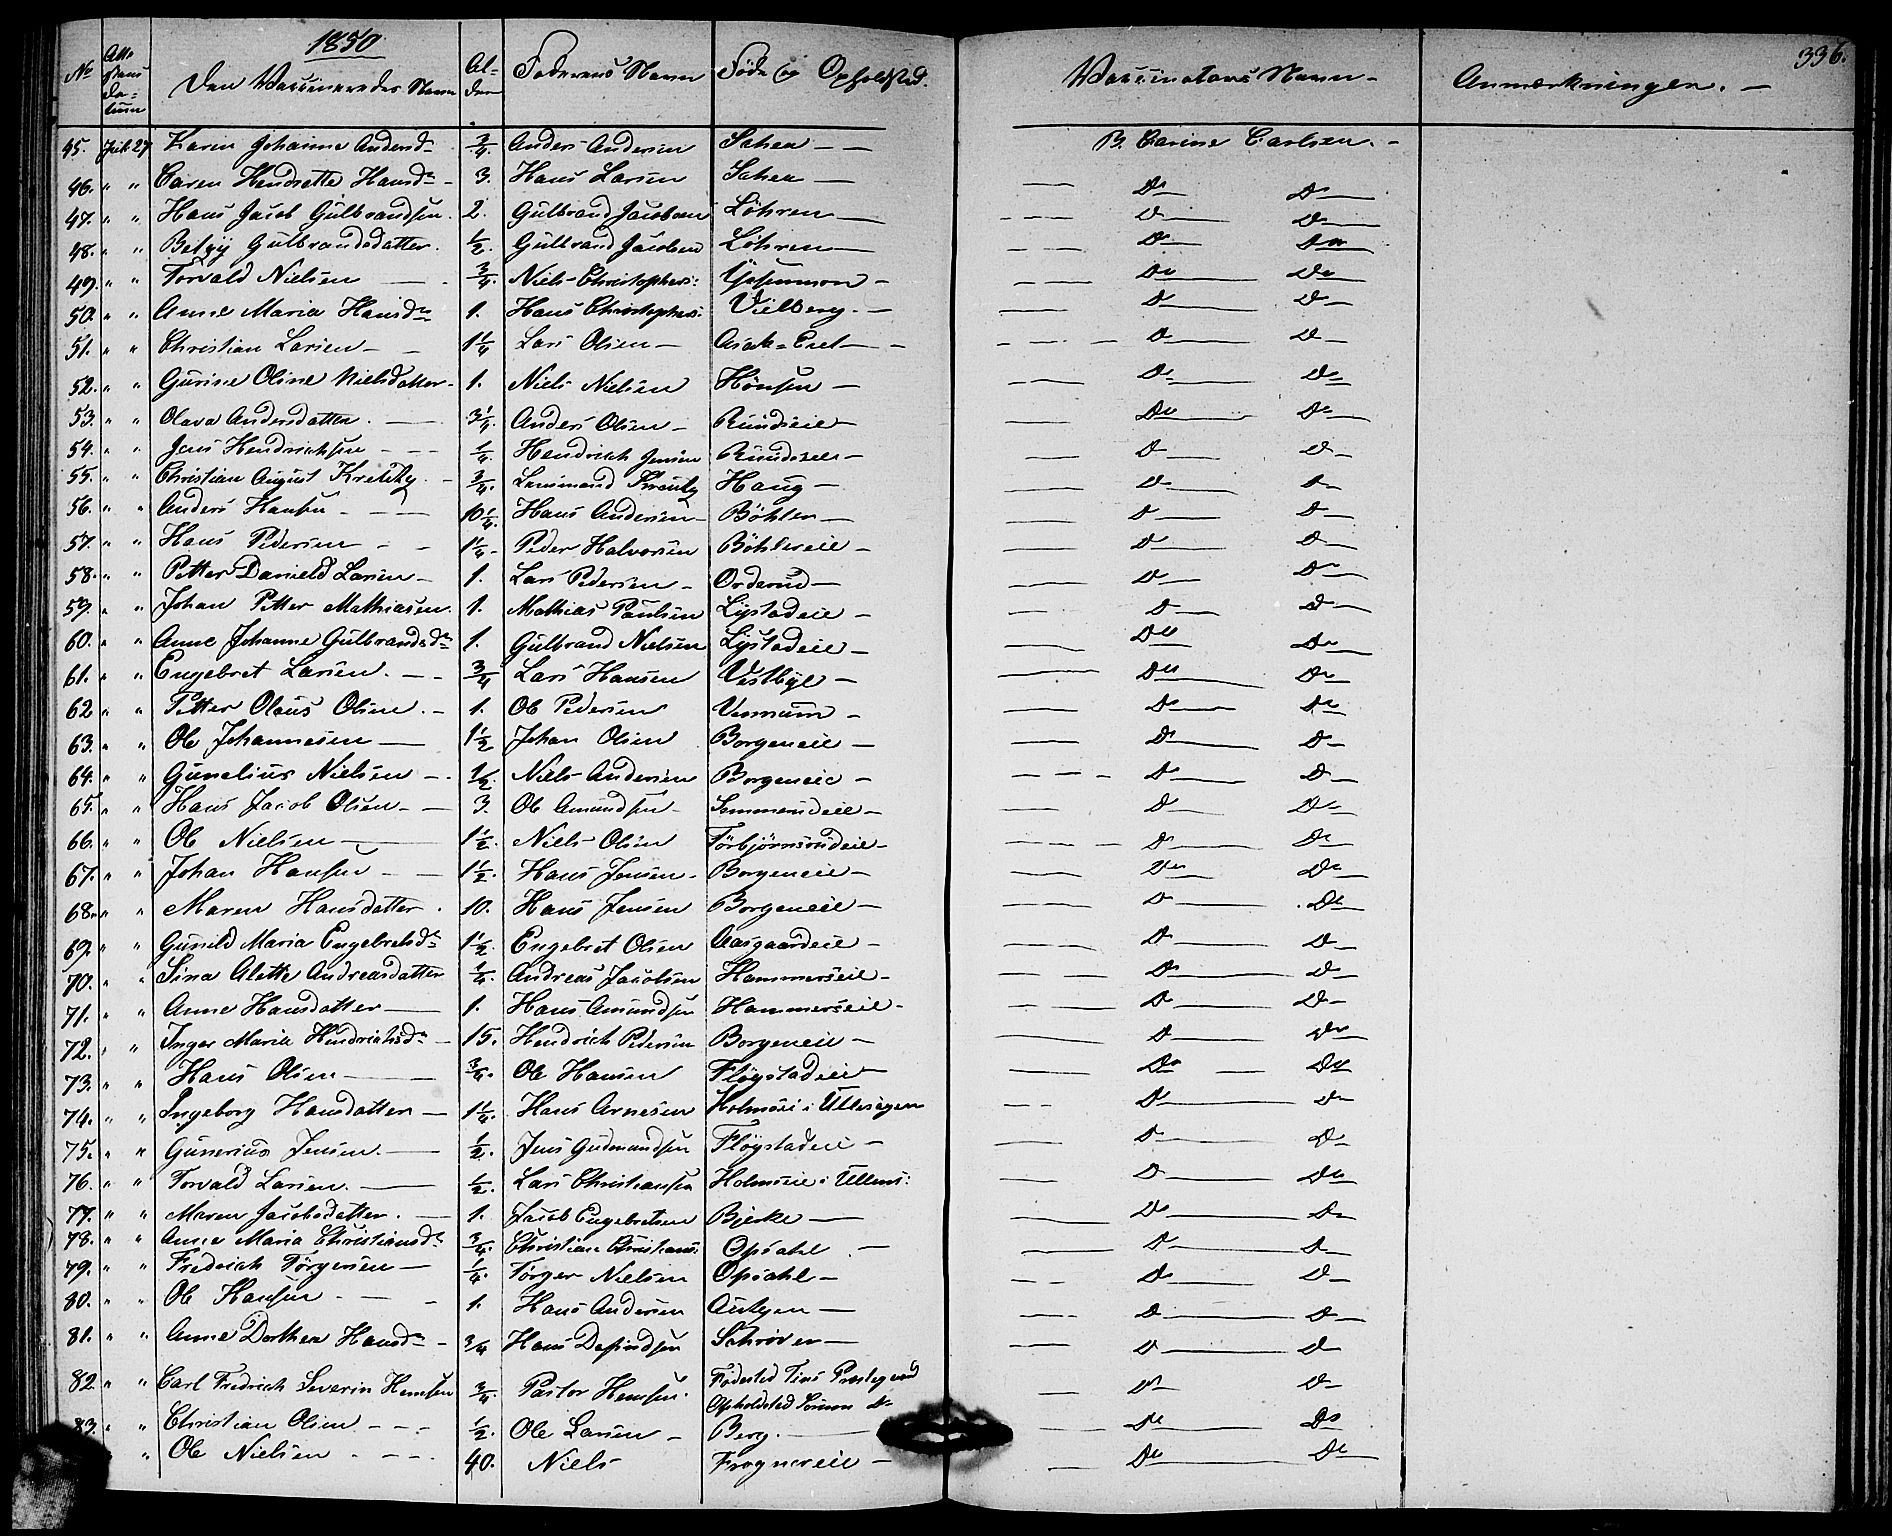 336.
1850
No Attestans Datum Den Vaccineredes Navn Alder Faderens Navn Føde og Opholdsted. Vaccinatons Navn - Anmærkninger. -
45. Juli 27 Karen Johanne Andersd. 3/4. Anders Andersen Sahea - B. Carine Carlsen. -
46. " " Caren Hendrette Hansdr - 3. Hans Larsen Sahea - Do Do
47. " " Hans Jacob Gulbrandsen. 2. Gulbrand Jacobsen Löhren - Do Do
48. " " Betzÿ Gulbrandsdatter. 1/2. Gulbrand Jacobsen Löhren - Do Do
49. " " Torvald Nielsen 3/4. Niels Christophers: - Do Do
50. " " Anne Maria Hansdr 1. Hans Christophers: Vilberg. - Do Do
51. " " Christian Larsen - 1 1/4 Lars Olsen - Do Do
52. " " Gurine Oline Nielsdatter - 1. Niels Nielsen Hønsen - Do Do
53. " " Olava Andersdatter. 3 1/4. Anders Olsen - Rundseie - Do Do
54. " " Jens Hendrichsen - 1/4. Hendrich Jensen Rundseie - Do Do
55. " " Christian August 3/4. Haug - Do Do
56. " " Anders Hansen - 10 1/4. Hans Andersen Böhler - Do Do
57. " " Hans Pedersen - 1 1/4. Peder Halvorsen Böhlereie - Do Do
58. " " Petter Danield Larsen - 1. Lars Pedersen - Orderud - Do Do
59. " " Johan Petter Mathiasen. 1. Mathias Paulsen Lystadeie - Do Do
60. " " Anne Johanne Gulbrandsdr 1. Gulbrand Nielsen Lystadeie - Do Do
61. " " Engebret Larsen. - 3/4 Lars Hansen Vestbye - Do Do
62 " " Petter Olaus Olsen. - 1. Ole Pedersen - Do Do
63. " " Ole Johannesen - 1 1/2 Johan Olsen Borgeneie - Do Do
64. " " Gunelius Nielsen - 1/2. Niels Andersen Borgeneie - Do Do
65. " " Hans Jacob Olsen - 3. Ole Amundsen - - Do Do
66. " " Ole Nielsen - 1 1/2. Niels Olsen Törbjörnsrudeie - Do Do
67. " " Johan Hansen - 1 1/2. Hans Jensen - Borgeneie - Do Do
68. " " Maren Hansdatter. 10. Hans Jensen Borgeneie - Do Do
69. " " Gunild Maria Engebretsdr 1 1/2 Engebret Olsen Aasgaardeie - Do Do
70. " " Sina Alette Andreasdatter 1/4. Andreas Jacobsen Hammerseie - Do Do
71. " " Anne Hansdatter - 1. Hans Amundsen Hammerseie - Do Do
72. " " Inger Maria Hendrichsdr - 15. Hendrich Pedersen Borgeneie - Do Do
73. " " Hans Olsen - 3/4. Ole Hansen Fløgstadeie - Do Do
74. " " Ingeborg Hansdatter - 1 1/4. Hans Arnesen i Ullesagen Do Do
75. " " Gunerius Jensen. - 1/2. Jens Gudmundsen Fløgstadeie - Do Do
76. " " Torvald Larsen. - 1/2. Lars Christiansen Holmseie i Ullens: Do Do
77. " " Maren Jacobsdatter. - 1. Jacob Engebretsen Bjerke - Do Do
78. " " Anne Maria Christiansdr 3/4. Christian Christians: Opsahl. - Do Do
79. " " Fredrich Törgersen - 1/4. Törger Nielsen Opsahl - Do Do
80. " " Ole Hansen - 1. Hans Andersen - Do Do
81. " " Anne Dorthea Hansdr - 3/4 Hans Schrøver - Do Do
82 " " Carl Fredrich Severin Hemsen 3/4. Pastor Hemsen. Fødested Tins Prestegield Do Do
Opholdsted Sörum do
83. " " Christian Olsen - 1/2. Ole Larsen - Berg. - Do Do
" Ole Nielsen - 40. Niels Frognereie - Do Do